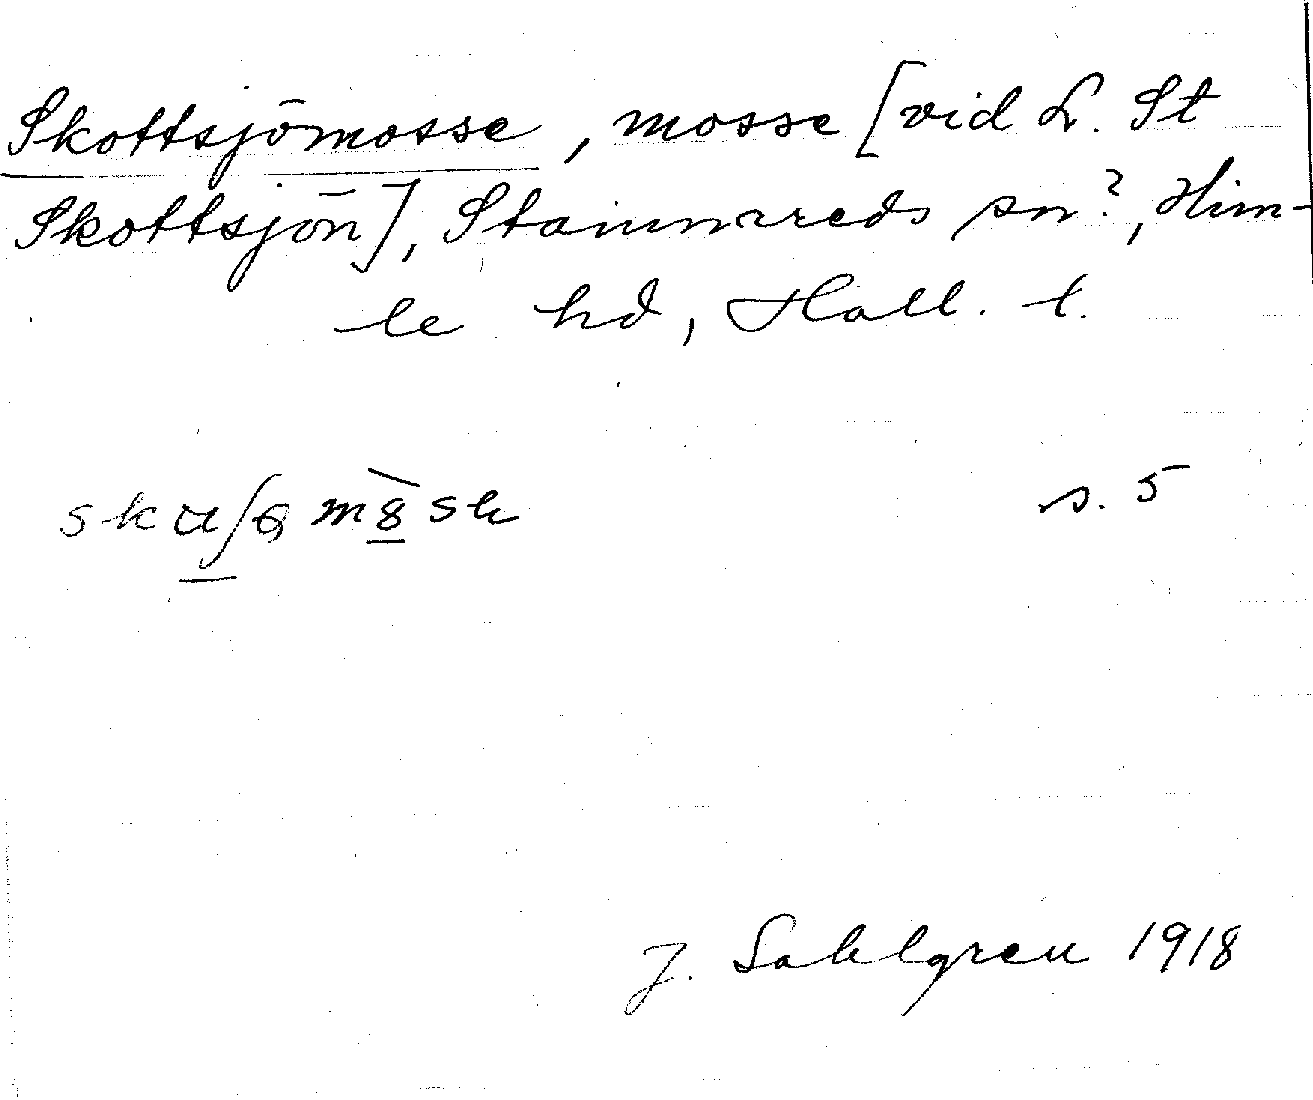 Skottsjömosse, mosse [vid L. St
Skottsjön], Stamnareds sn?, Him-
le hd, Hall. l.
s. 5
J. Sahlgren 1918